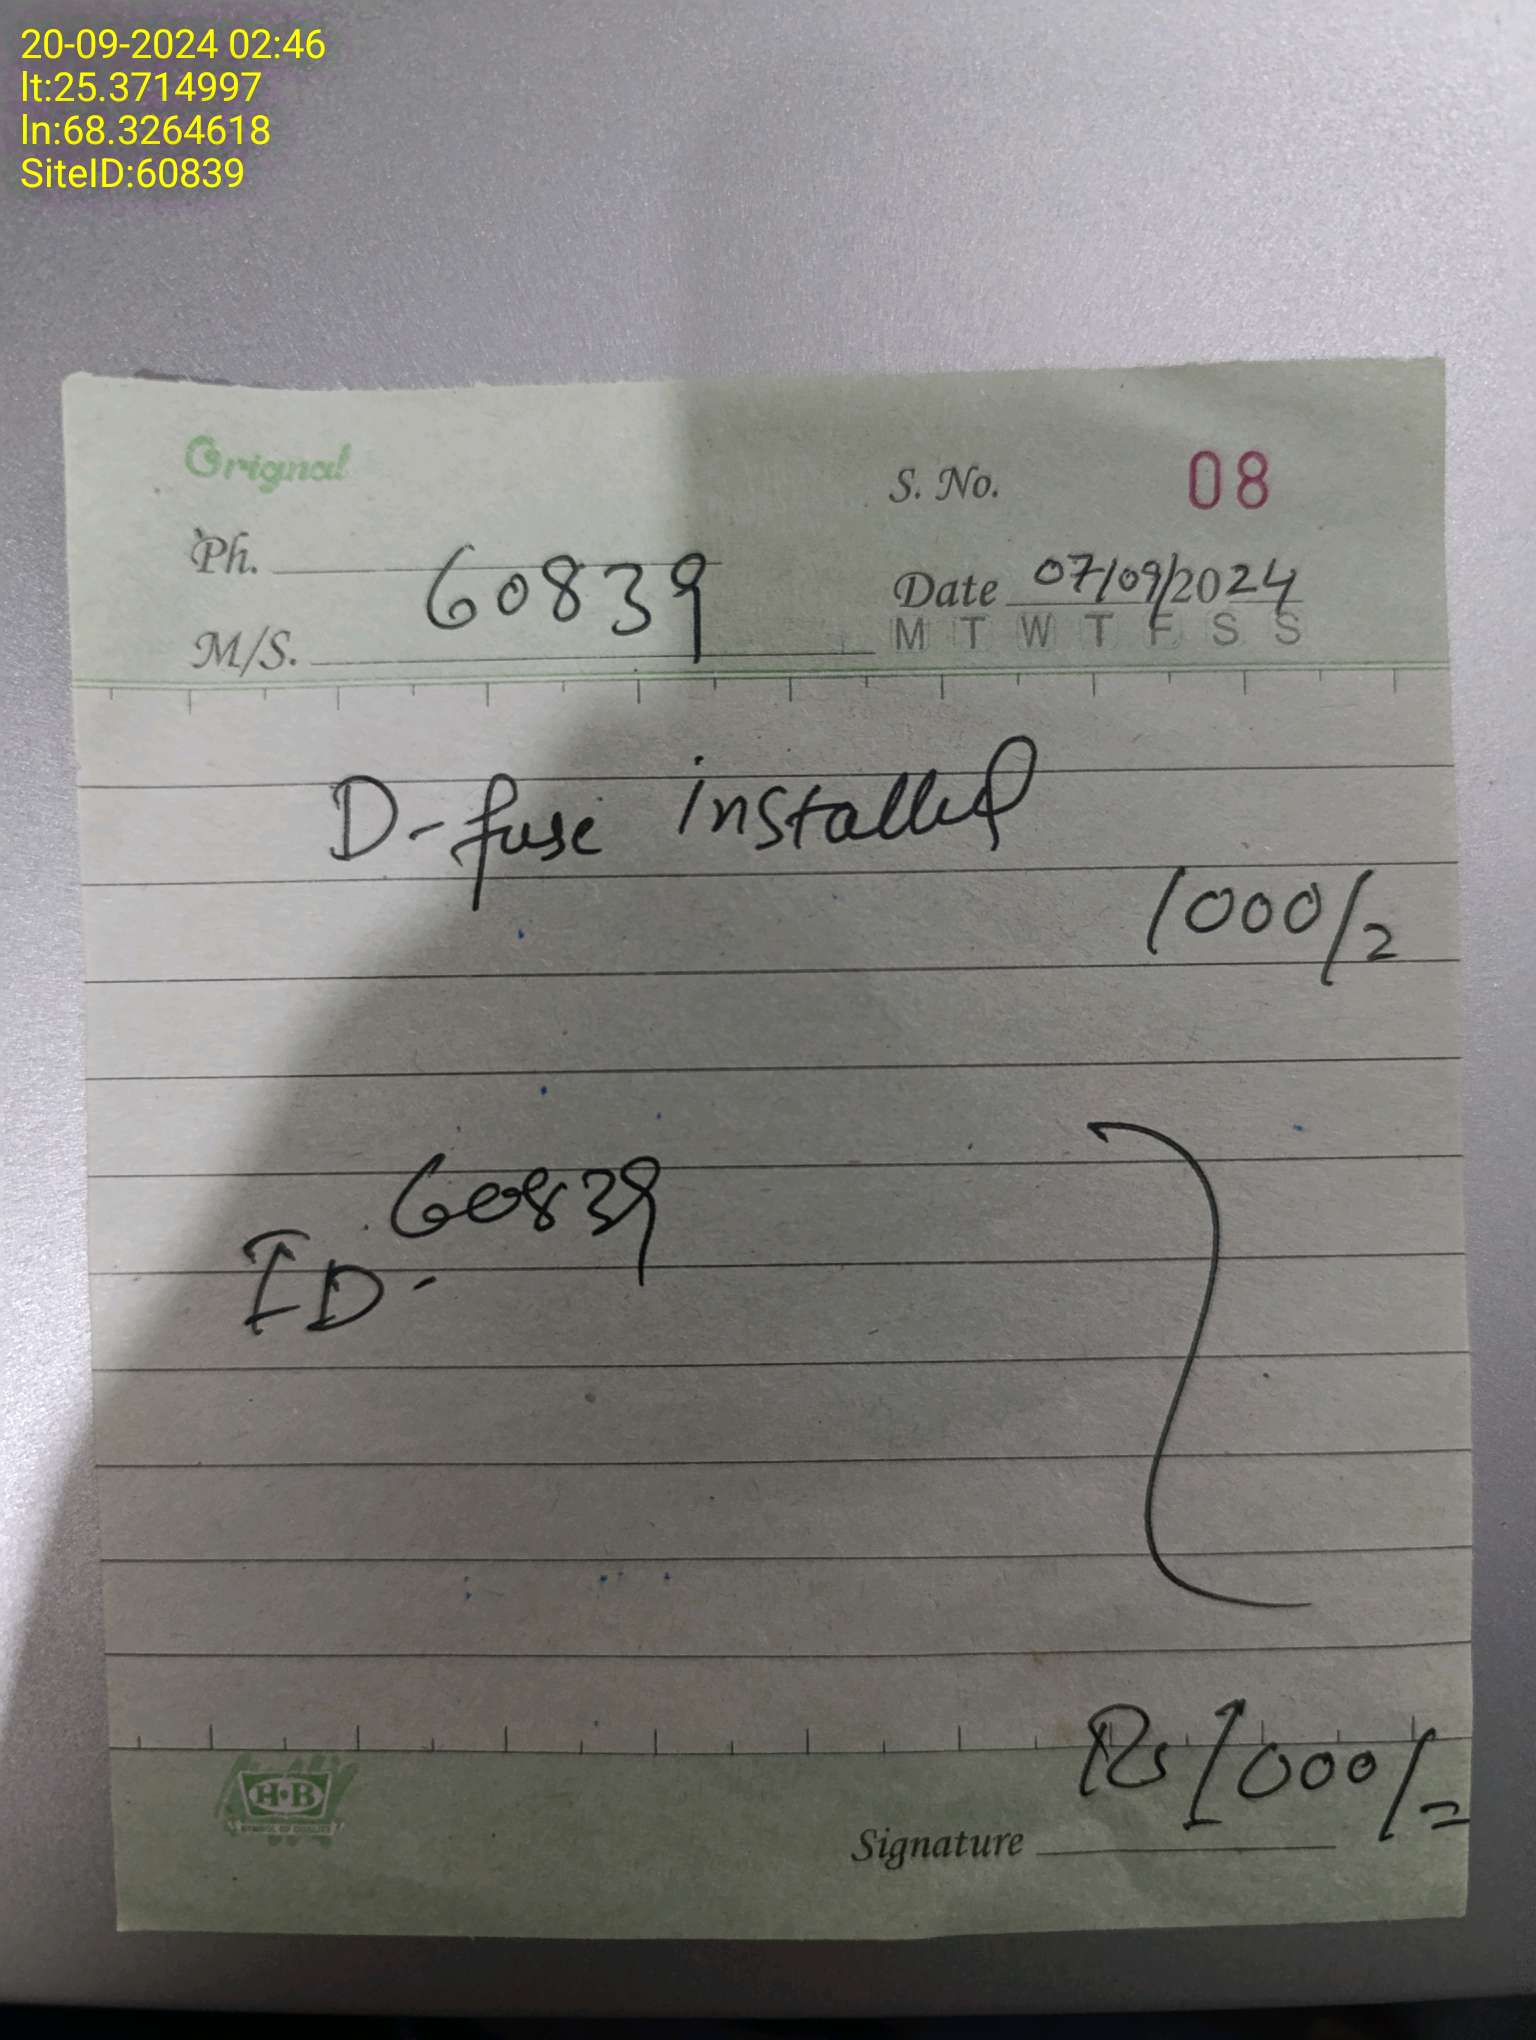 20-09-2024 02:46
lt:25.3714997
ln:68.3264618
SiteID:60839
Orignal
S. No. 08
Ph.
60839
Date 07/09/2024
M/S.
M T W T F S S
D-fuse installed
1000/=
60839
ID-
Rs 1000/=
H·B
SYMBOL OF QUALITY
Signature